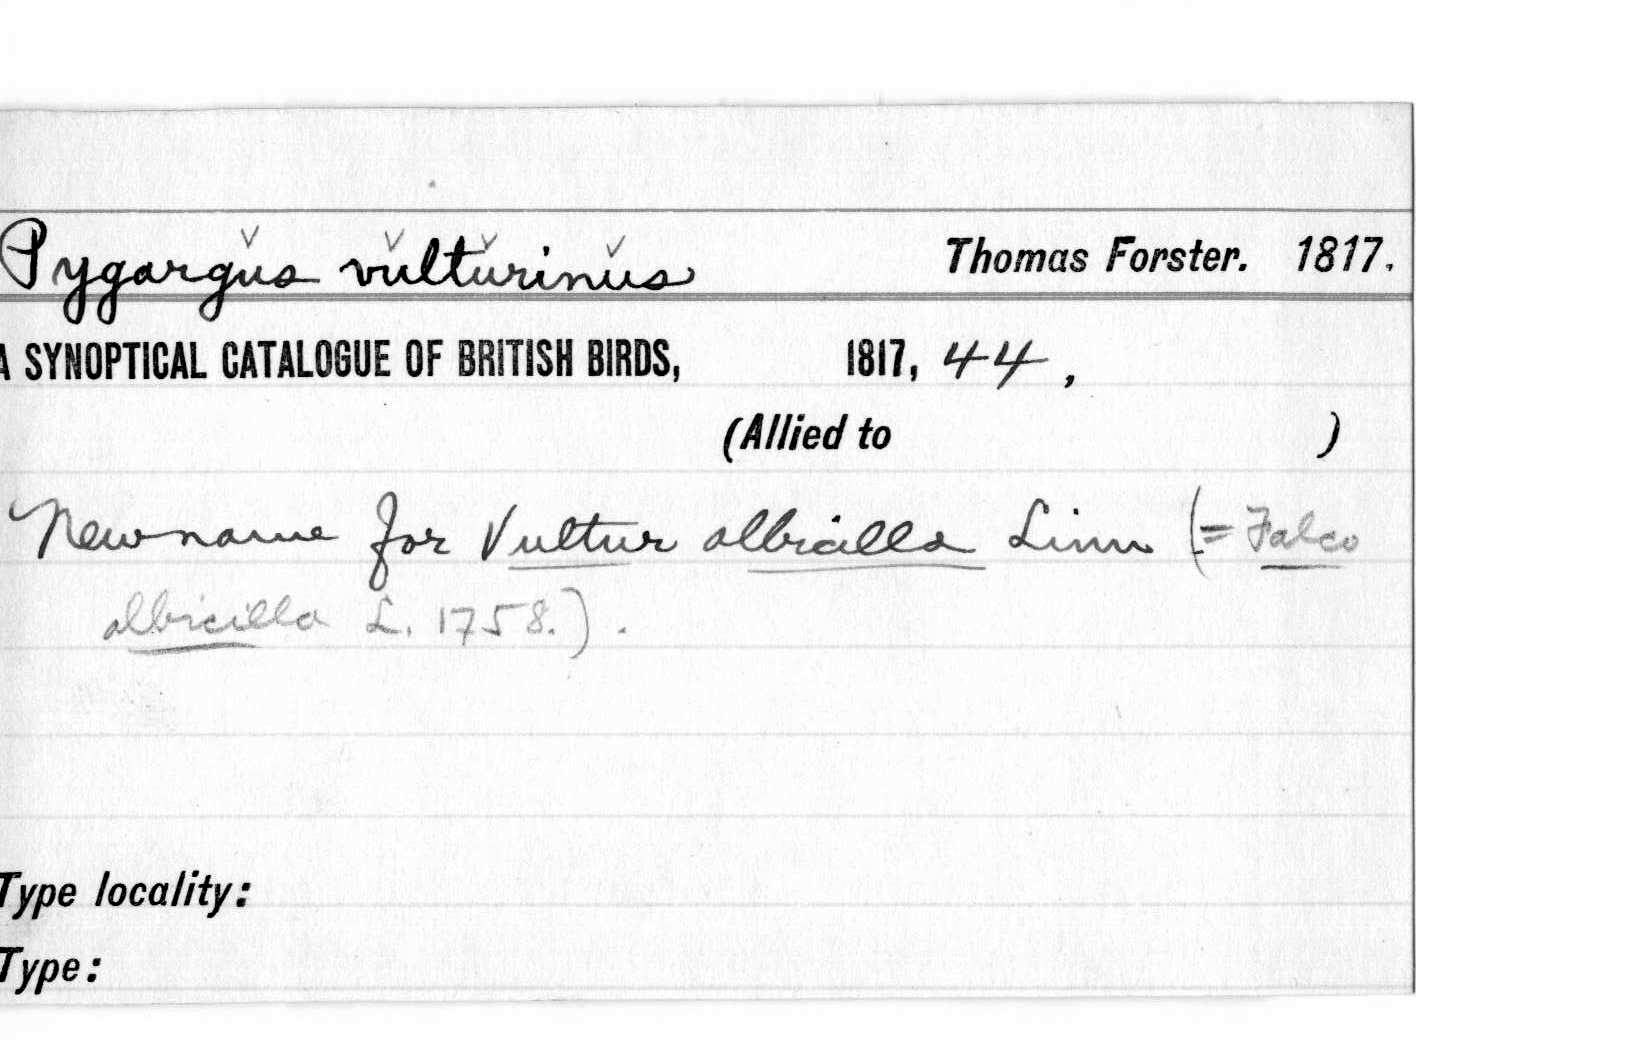 Pygargus vulturinus Thomas Forster. 1817.
A SYNOPTICAL CATALOGUE OF BRITISH BIRDS, 1817, 44,
(Allied to )
New name for Vultur albicilla Linn (= Falco
albicilla L. 1758.).
Type locality:
Type: